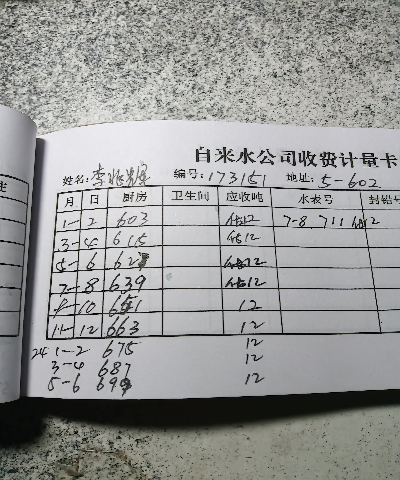 自来水公司收费计量卡
姓名: 李 编号: 173151 地址: 5-602
月 日 厨房 卫生间 应收吨 水表号 封铅号
1-2 603 估12 7-8 711 估12
3-4 615 估12
5-6 627 估12
7-8 639 估12
9-10 651 12
11-12 663 12
24 1-2 675 12
3-4 687 12
5-6 699 12